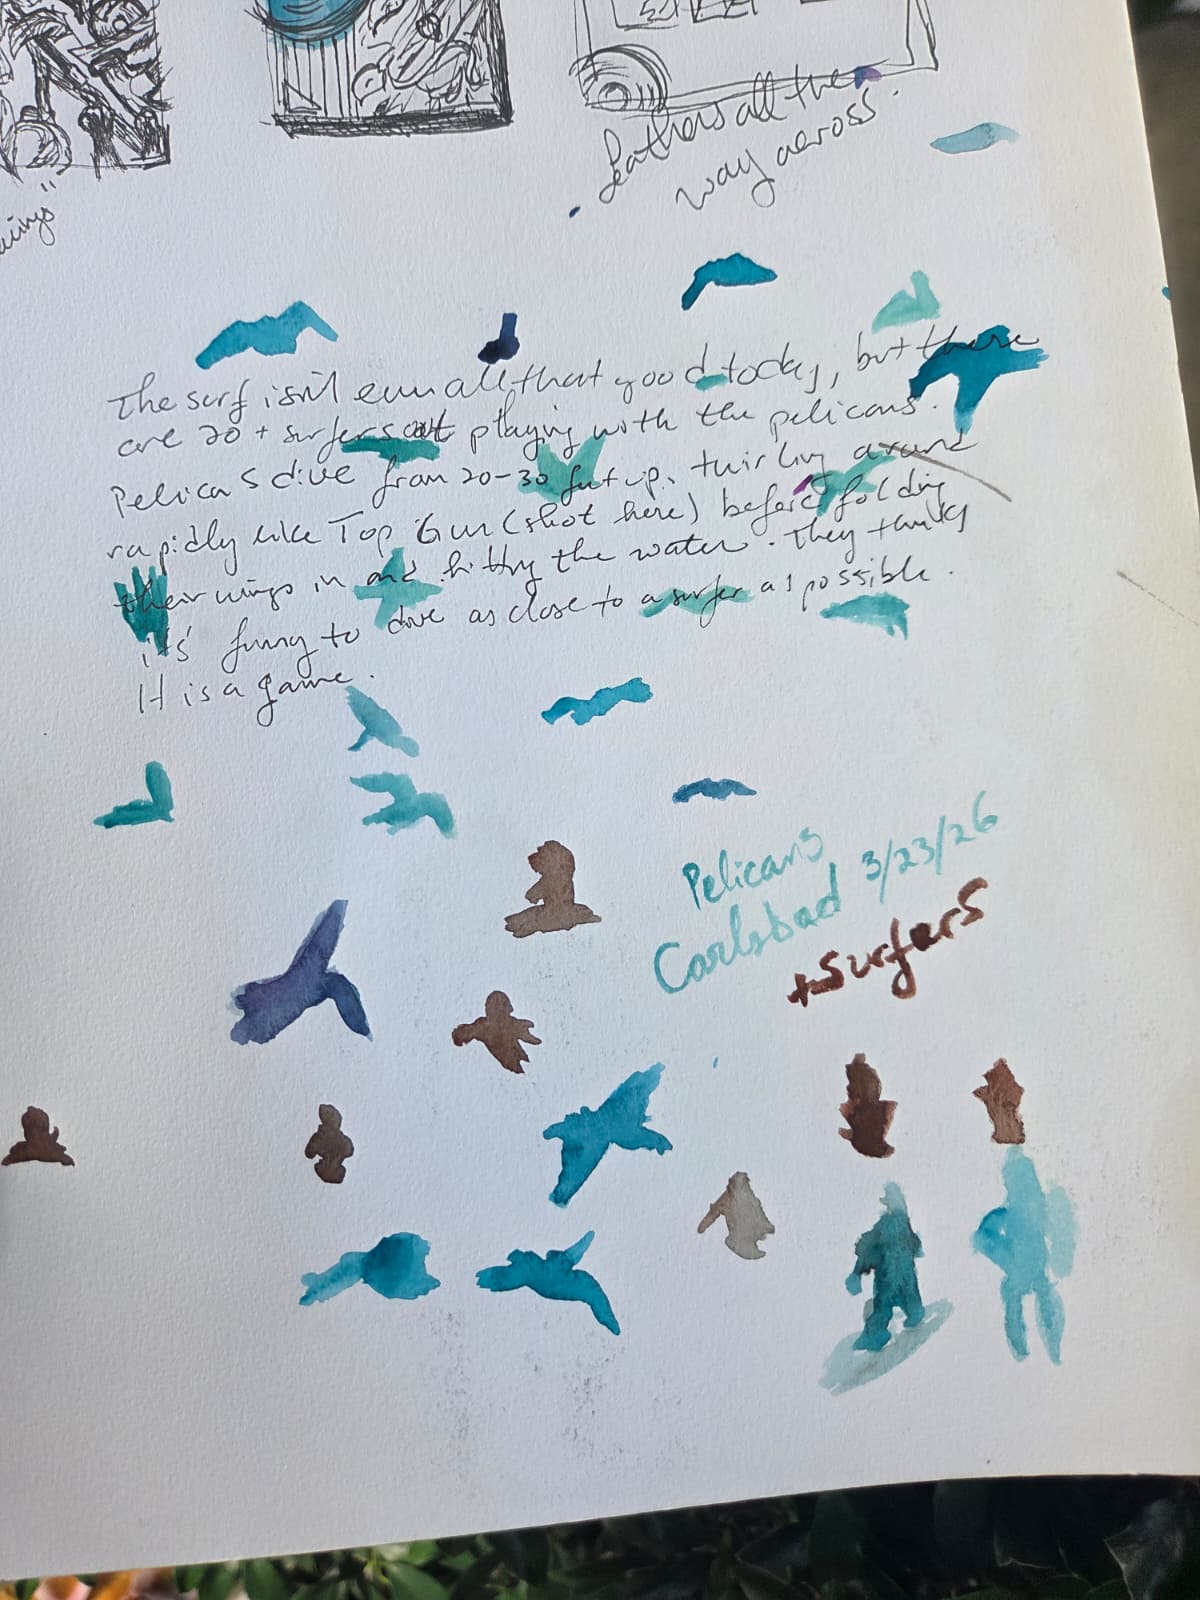 feathers all the
way across.
The surf isn't even all that good today, but there
are 20 + surfers out playing with the pelicans.
Pelicans dive from 20-30 feet up, twirling around
rapidly like Top Gun (shot here) before folding
their wings in and hitting the water. They think
it's funny to dive as close to a surfer as possible.
It is a game.
Pelicans
Carlsbad 3/23/26
+surfers